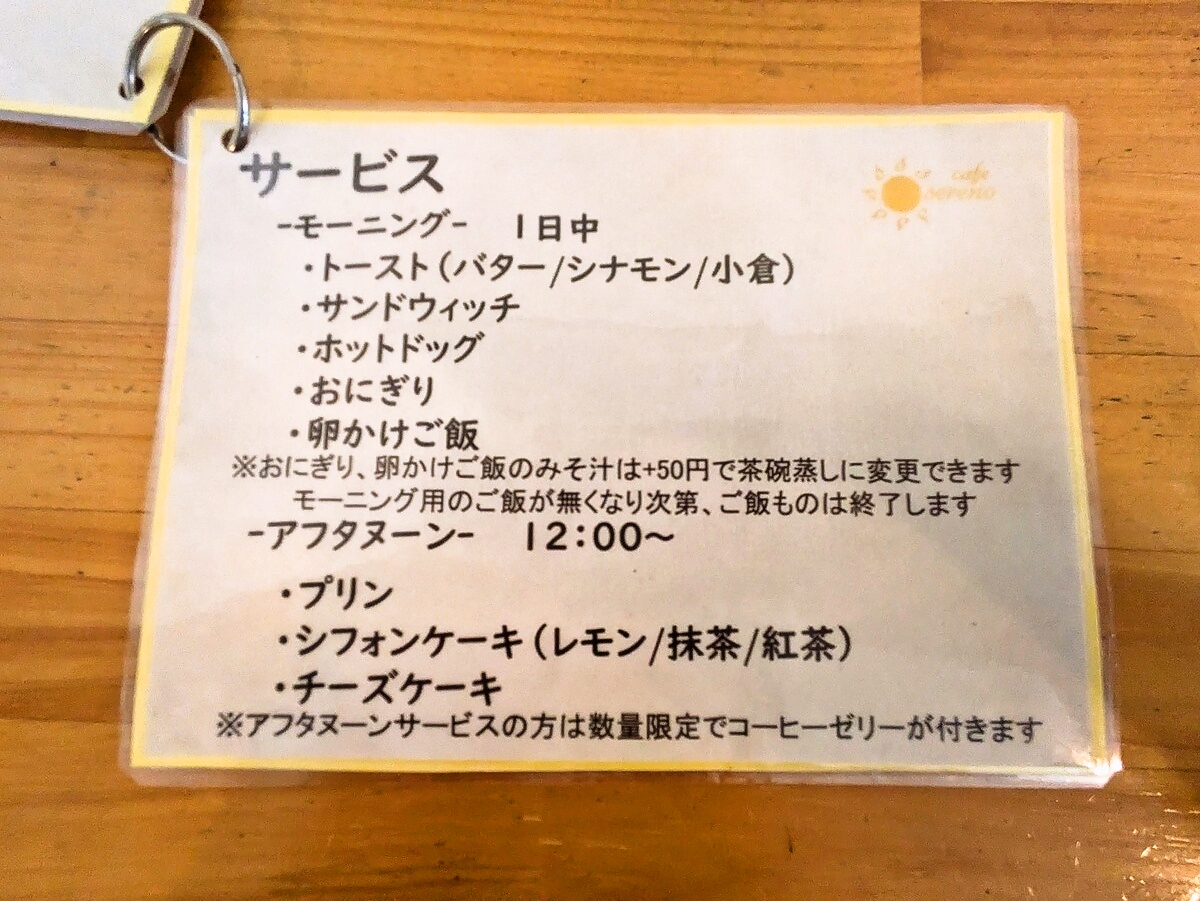 サービス
cafe
sereno
-モーニング-　1日中
・トースト(バター/シナモン/小倉)
・サンドウィッチ
・ホットドッグ
・おにぎり
・卵かけご飯
※おにぎり、卵かけご飯のみそ汁は+50円で茶碗蒸しに変更できます
モーニング用のご飯が無くなり次第、ご飯ものは終了します
-アフタヌーン-　12:00〜
・プリン
・シフォンケーキ(レモン/抹茶/紅茶)
・チーズケーキ
※アフタヌーンサービスの方は数量限定でコーヒーゼリーが付きます